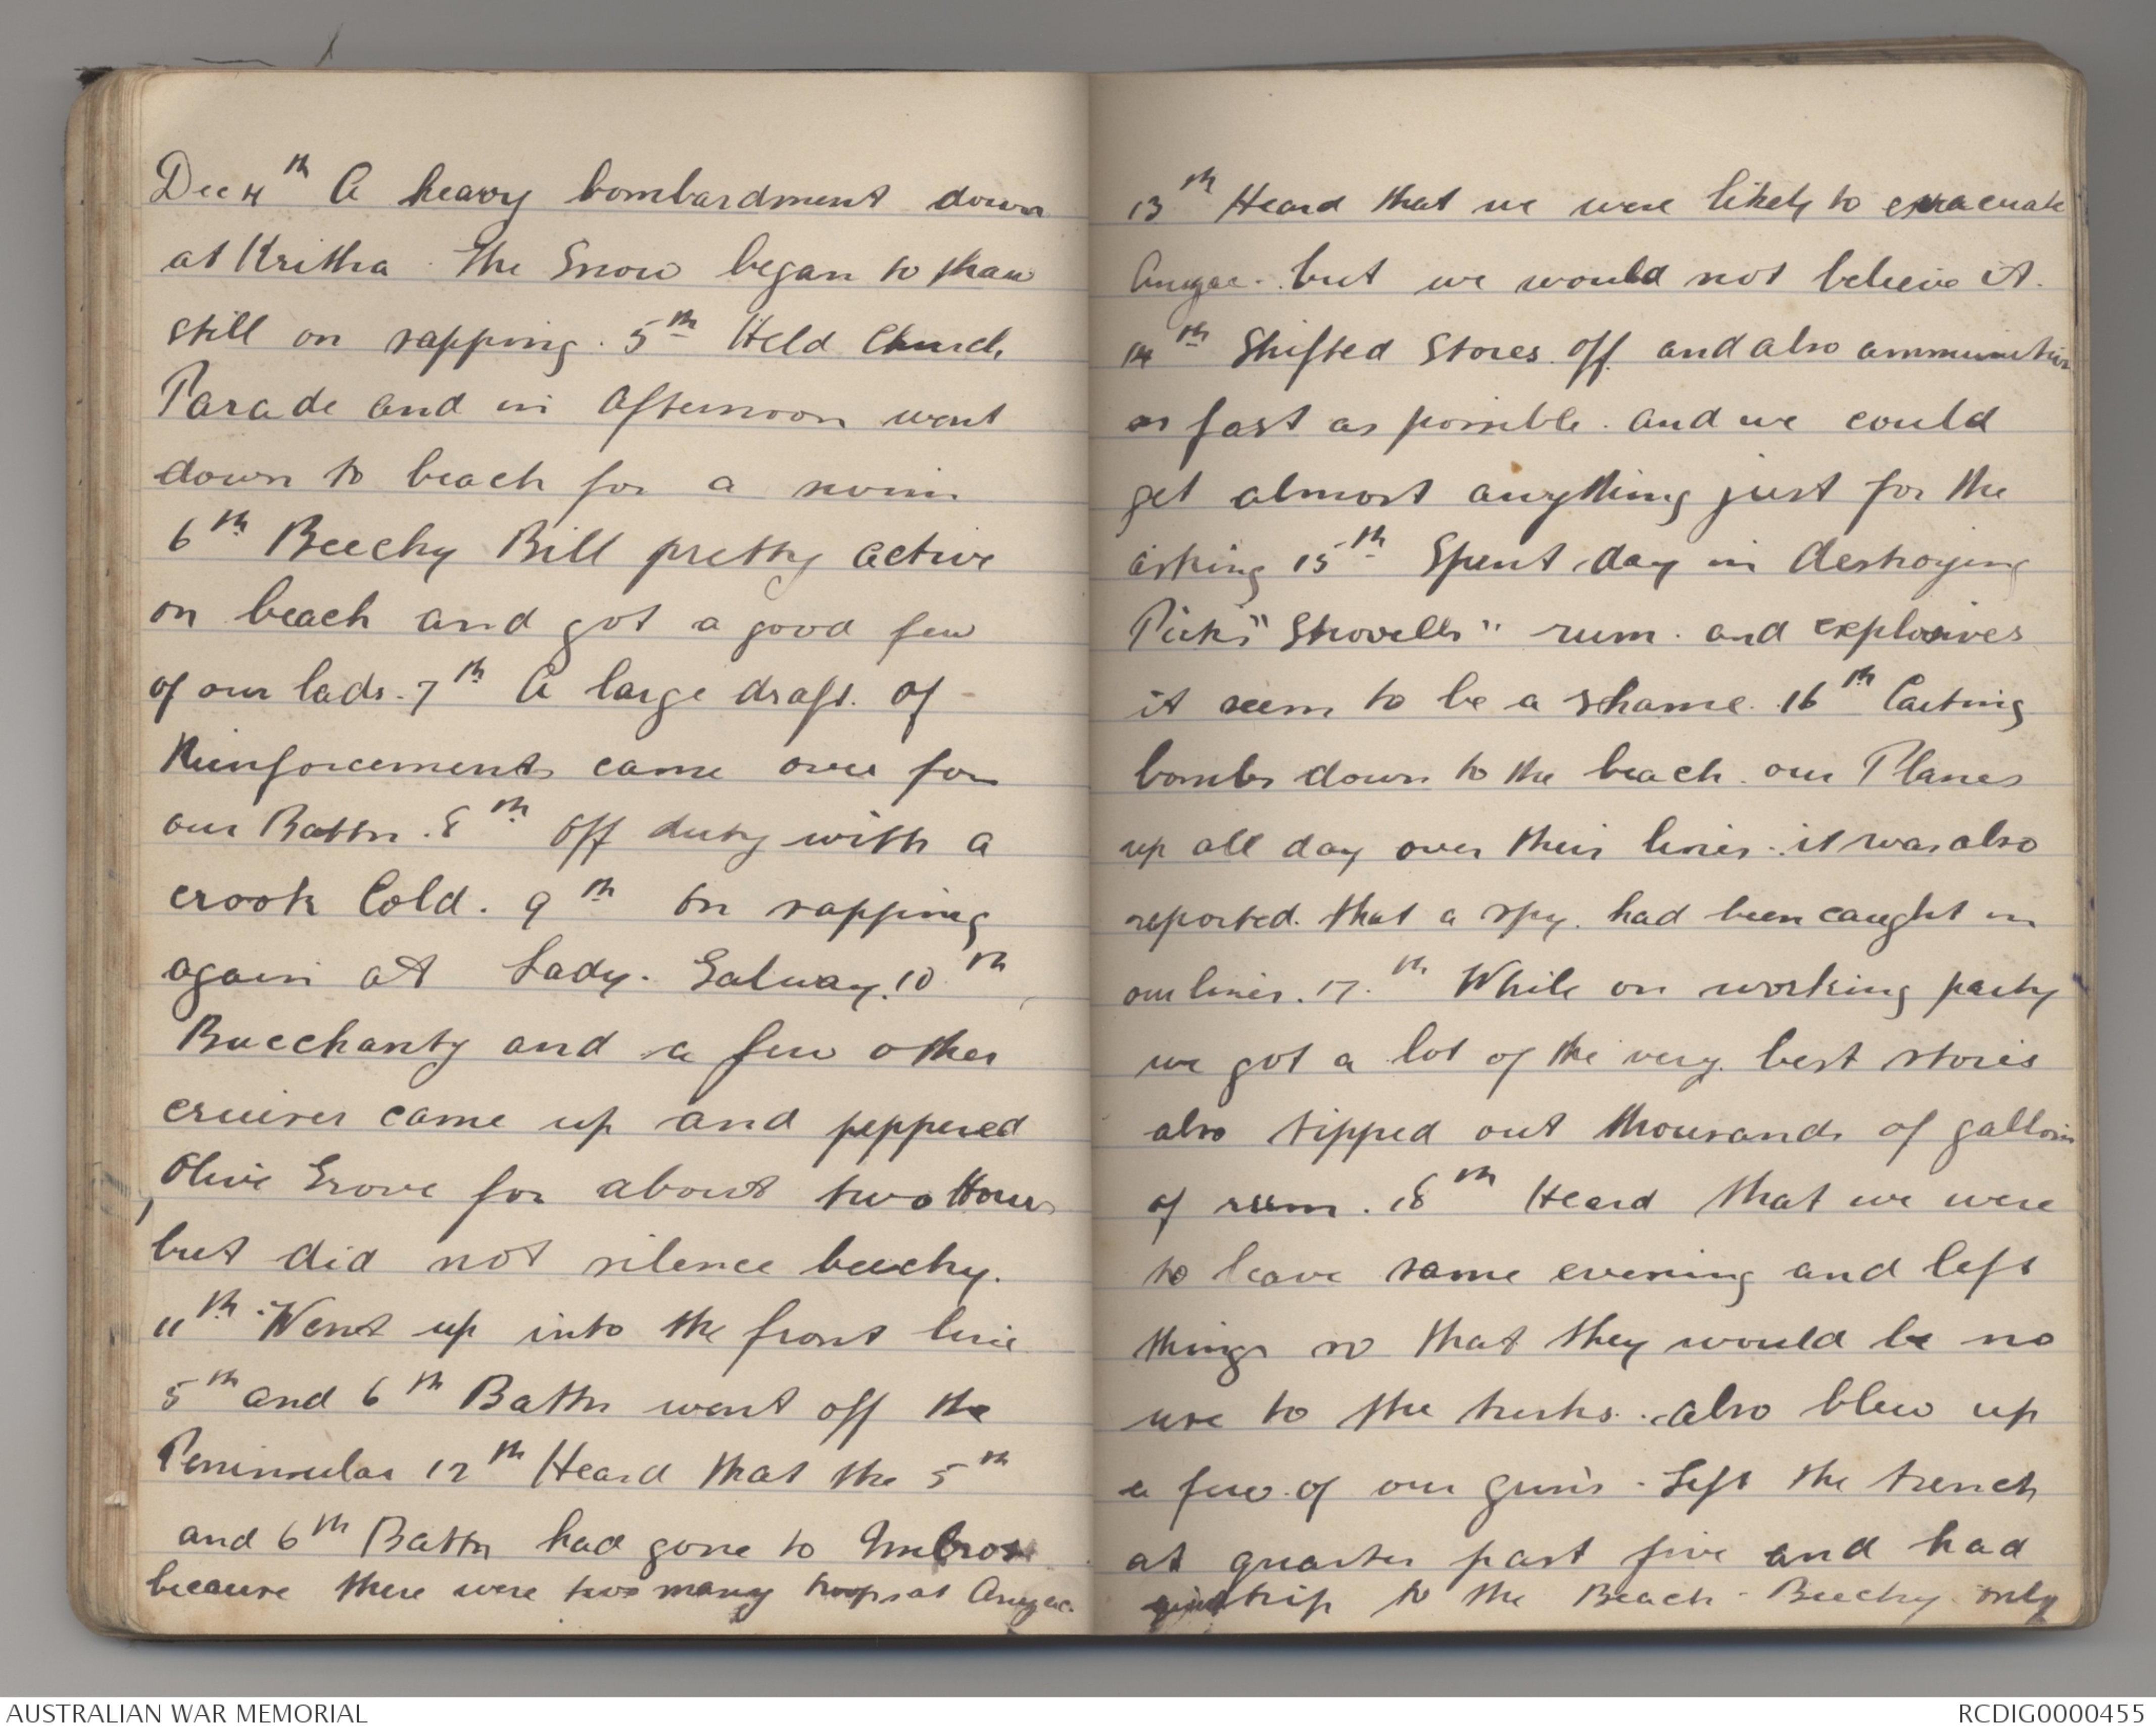 Dec 4th A heavy bombardment down
at Kritha. The Snow began to thaw
still on sapping. 5th Held Church
Parade and in Afternoon went
down to beach for a swim
6th Beechy Bill pretty active
on beach and got a good few
of our lads. 7th A large draft. of
Reinforcements came over for
our Battn. 8th Off duty with a
crook Cold. 9th On sapping
again at Lady. Galway. 10th
Bacchanty and a few other
cruiser came up and peppered
Olive Grove for about two Hours
but did not silence beechy.
11th Went up into the front line
5th and 6th Battn went off the
Peninsular 12th Heard that the 5th
and 6th Battn had gone to Imbros
because there were two many troops at Anzac.
13th Heard that we were likely to evacuate
Anzac. but we would not believe it.
14th Shifted Stores off and also ammunition
as fast as possible. and we could
get almost anything just for the
asking 15th Spent day in destroying
Picks" Shovells" rum. and explosives
it seem to be a shame. 16th Carting
bombs down to the beach. our Planes
up all day over their lines. it was also
reported. that a spy. had been caught in
our lines. 17.th While on working party
we got a lot of the very best stores
also tipped out thousands of gallons
of rum. 18th Heard that we were
to leave same evening and left
things so that they would be no
use to the turks. also blew up
a few of our guns. Left the trench
at quarter past five and had
trip to the Beach. Beechy only
AUSTRALIAN WAR MEMORIAL
RCDIG0000455